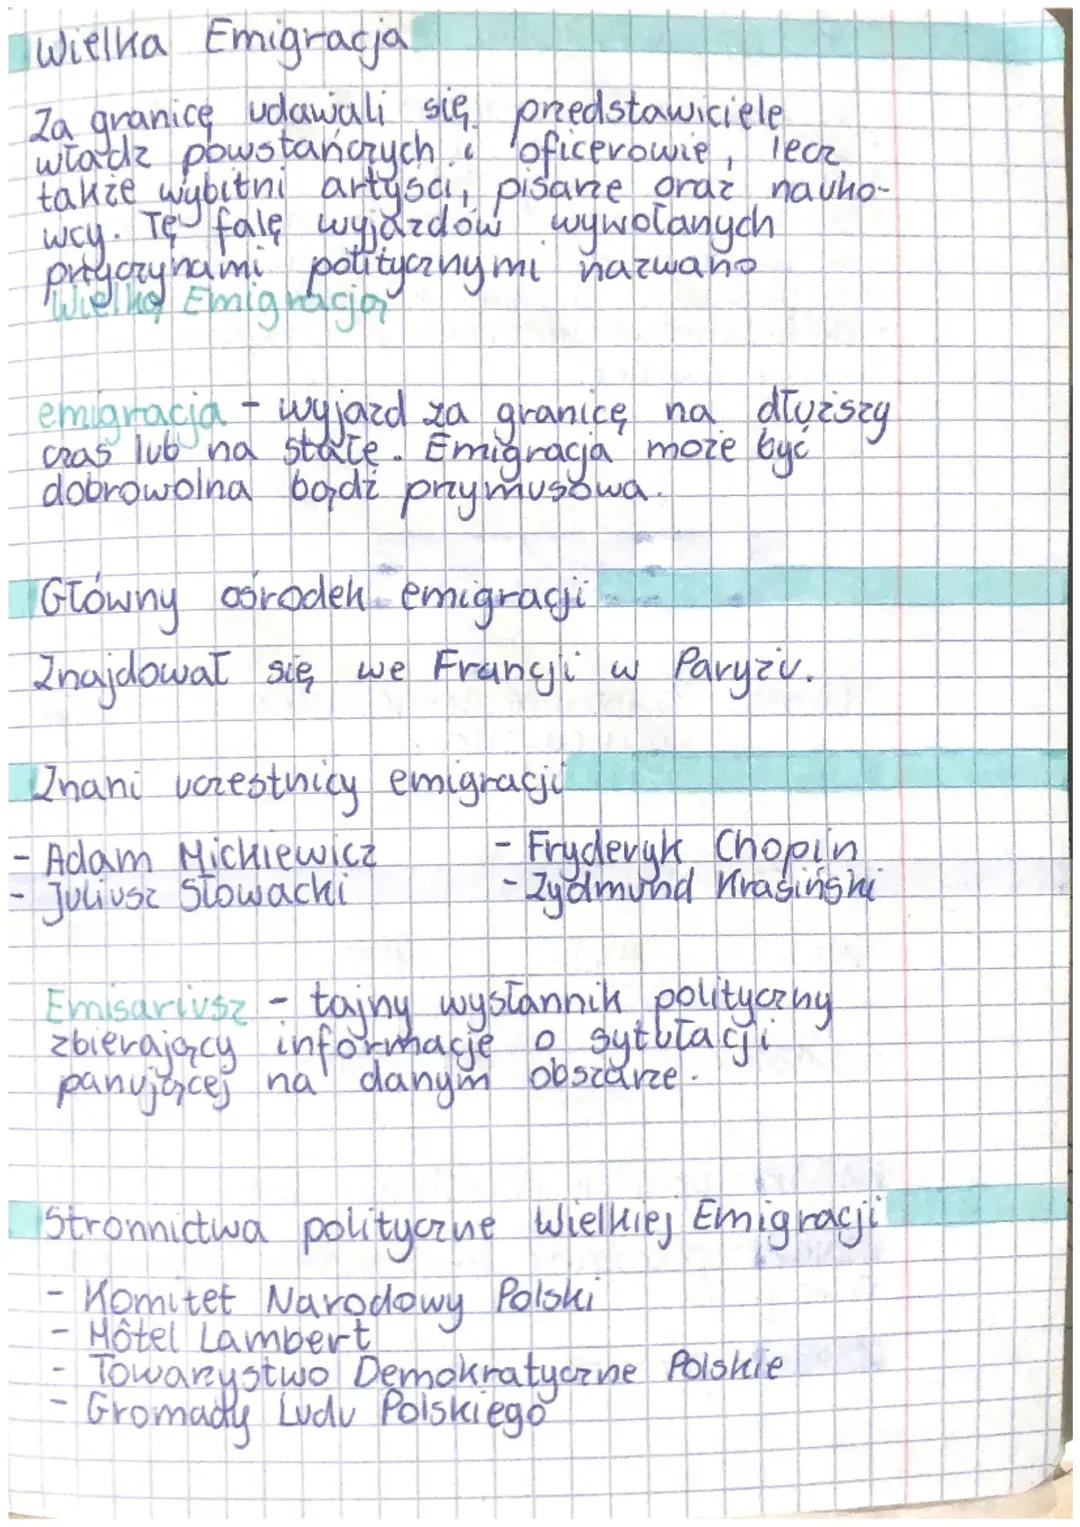 Wielka Emigracja
Za granicę udawali się przedstawiciele
władz powstańczych i oficerowie, lecz
także wybitni artyści, pisarze oraz nauko-
wcy. Tę falę wyjazdów wywołanych
przyczynami politycznymi nazwano
Wielką Emigracją
emigracja - wyjazd za granicę na dłuższy
czas lub na stałe. Emigracja może być
dobrowolna bądź przymusowa.
Główny ośrodek emigracji
Znajdował się we Francji w Paryżu.
Znani uczestnicy emigracji
- Adam Mickiewicz - Fryderyk Chopin
- Juliusz Słowacki - Zydmund Krasiński
Emisariusz - tajny wysłannik polityczny
zbierający informacje o sytułacji
panującej na danym obszarze.
Stronnictwa polityczne Wielkiej Emigracji
- Komitet Narodowy Polski
- Hôtel Lambert
- Towarzystwo Demokratyczne Polskie
- Gromady Ludu Polskiego